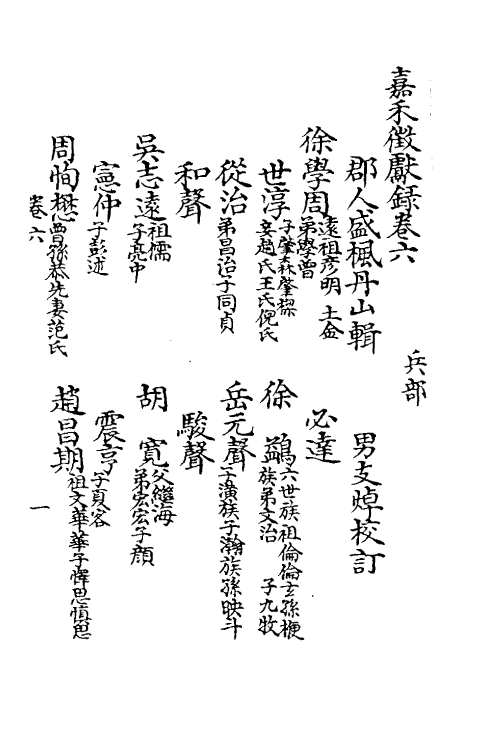 嘉禾徵獻錄卷六
兵部
郡人盛楓丹山輯
男支焯校訂
徐學周遠祖彦明 士金
弟學曾
必達
世淳子肇森肇樑
妾趙氏王氏倪氏
徐 鷁六世族祖倫倫玄孫梗
族弟文治 子九牧
從治弟昌治子同貞
岳元聲子潢族子瀚族孫映斗
和聲
駿聲
吳志遠祖儒
子亮中
胡 寬父繼海
弟宏宏子顔
憲仲子彭述
震亨子夏客
周恂懋曾孫恭先妻范氏
趙昌期祖文華華子懌思慎思
卷六
一